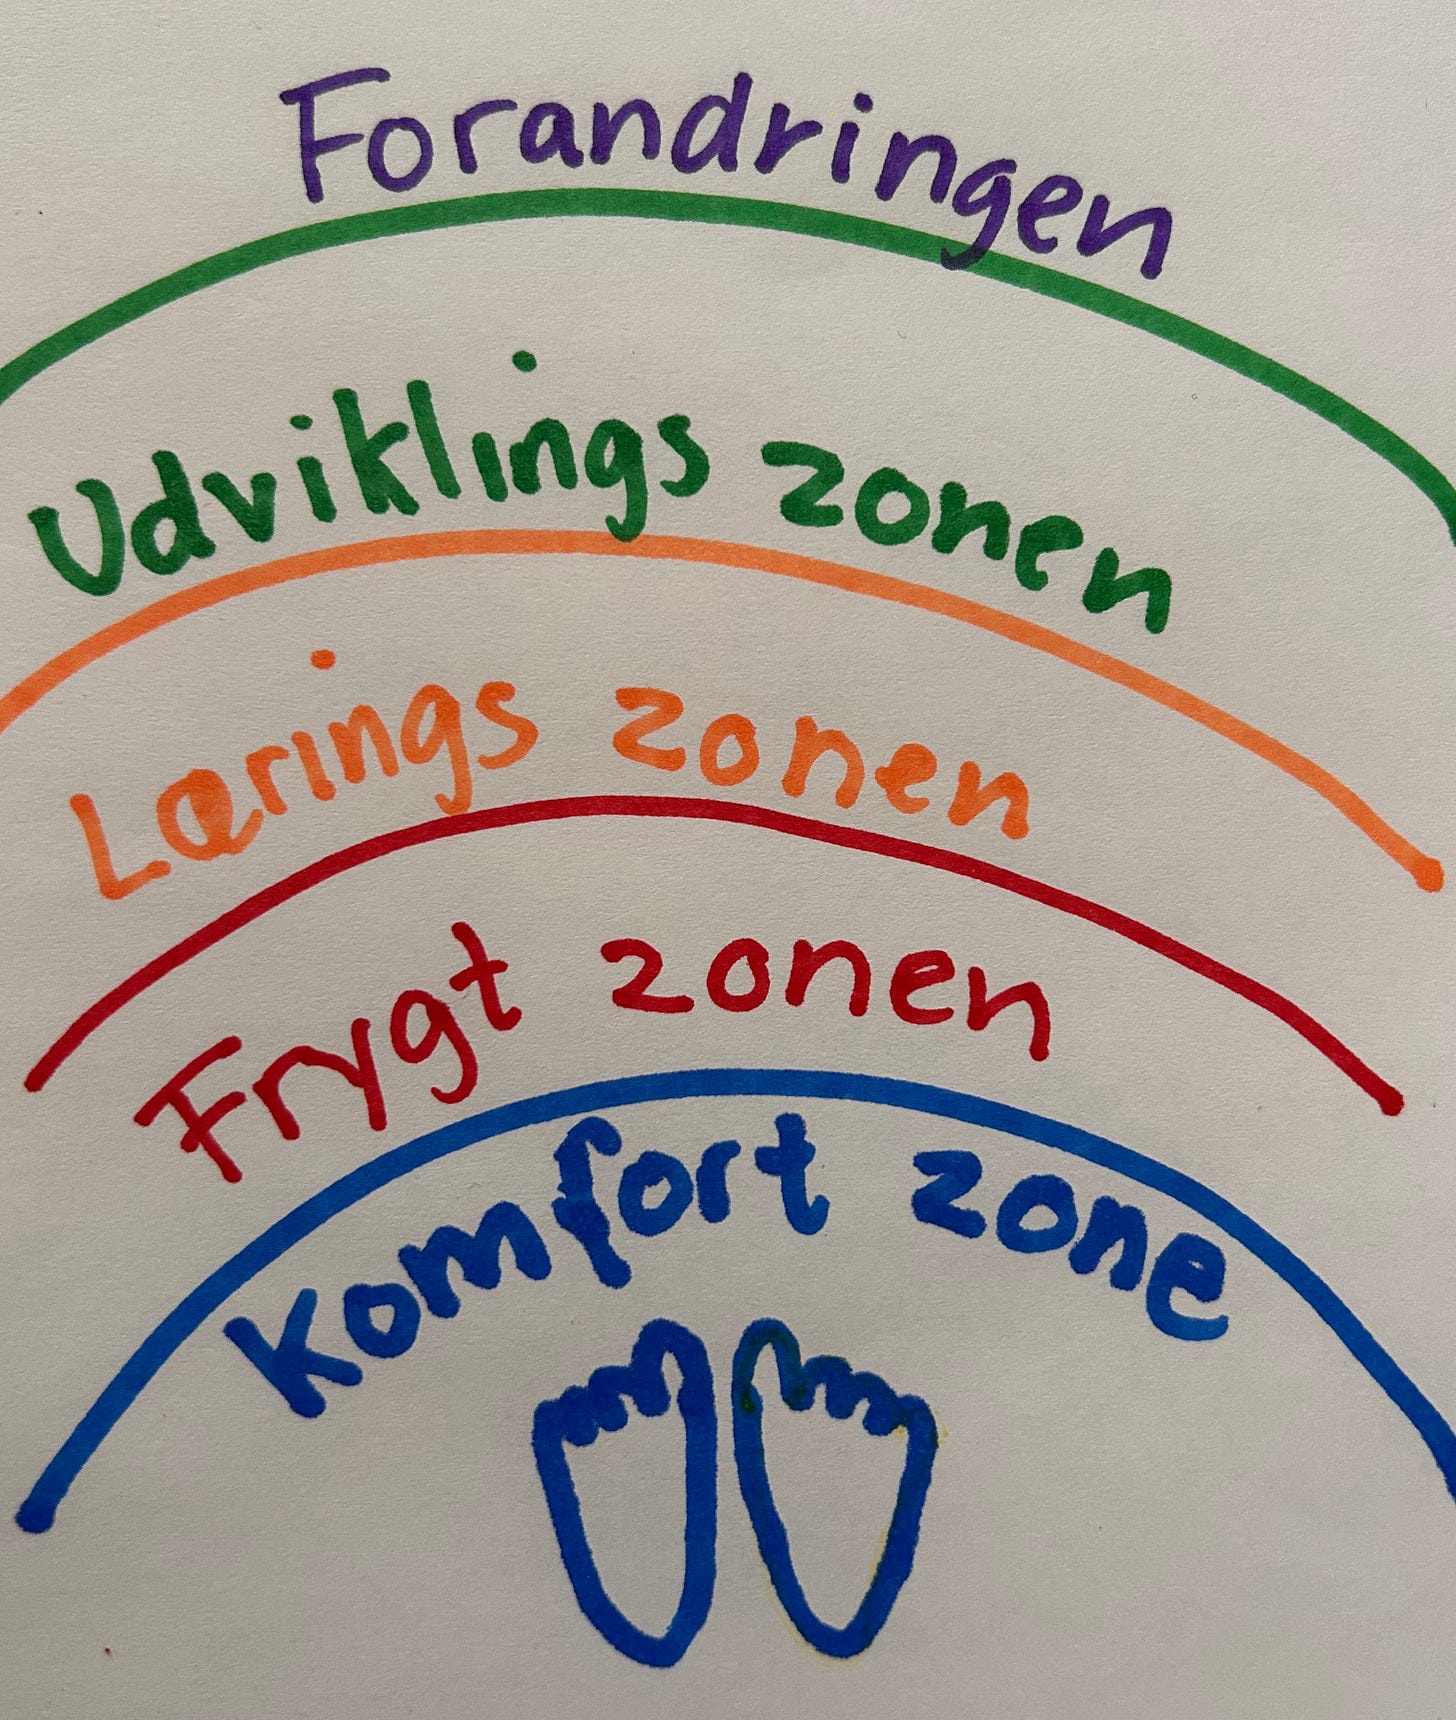 Forandringen
Udviklings zonen
Lærings zonen
Frygt zonen
Komfort zone